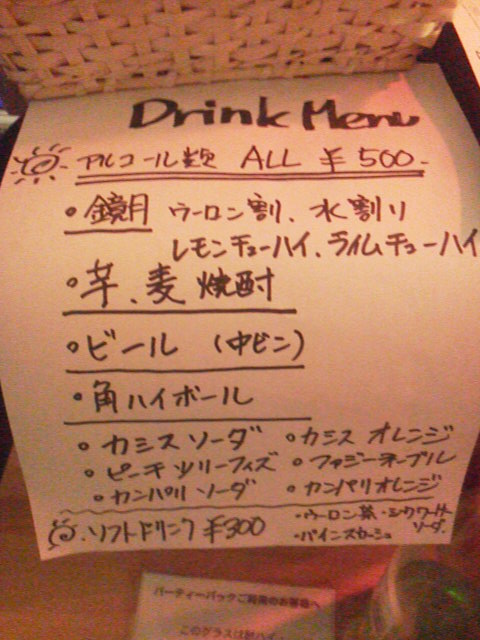 Drink Menu
アルコール類 ALL ¥500-
・鏡月 ウーロン割、水割り
レモンチューハイ、ライムチューハイ
・芋、麦 焼酎
・ビール (中ビン)
・角ハイボール
○カシスソーダ ○カシスオレンジ
○ピーチツリーフィズ ○ファジーネーブル
○カンパリソーダ ○カンパリオレンジ
・ソフトドリンク ¥300 ・ウーロン茶・シクワーサーソーダ
・パインスカッシュ
パーティーパックご利用のお客様へ
このグラスは